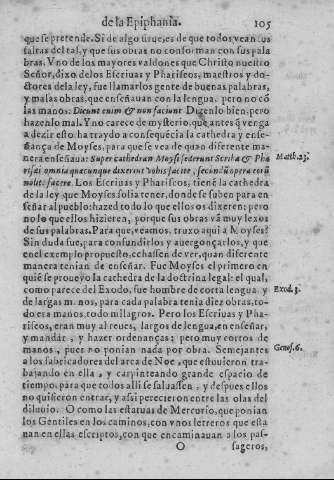 de la Epiphania. 105
que se pretende. Si de algo sirue, es de que todos vean sus
faltas del tal, y que sus obras no conforman con sus pala
bras. Vno de los mayores valdones que Christo nuestro
Señor, dixo de los Escriuas y Phariseos, maestros y do-
ctores de la ley, fue llamarlos gente de buenas palabras,
y malas obras, que enseñauan con la lengua, pero no cõ
las manos: Dicunt enim & non faciunt Digenlo bien, pero
hazenlo mal. Y no carece de mysterio, que antes q̃ venga
a dezir esto ha traydo a consequẽcia la cathedra y ense-
ñança de Moyses, para que se vea de quan diferente ma
nera enseñaua: Super cathedram Moysi sederunt Scribæ & Pha Matth. 23.
risæi omnia quæcunque dixerint vobis facite, secundũ opera eorũ
nolite facere. Los Escriuas y Phariseos, tienẽ la cathedra
de la ley que Moyses solia tener, donde se suben para en
señar al pueblo: hazed todo lo que ellos os dixeren: pero
no lo que ellos hizieren, porque sus obras vã muy lexos
de sus palabras. Para que, veamos, truxo aqui a Moyses?
Sin duda fue, para confundirlos y auergonçarlos, y que
en el exemplo propuesto, echassen de ver, quan diferente
manera tenian de enseñar. Fue Moyses el primero en
quiẽ se proueyò la cathedra de la doctrina legal: el qual,
como parece del Exodo, fue hombre de corta lengua, y Exod. 3.
de largas manos, para cada palabra tenia diez obras, to-
do era manos, todo milagros. Pero los Escriuas y Pha-
riseos, eran muy al reues, largos de lengua, en enseñar,
y mandar, y hazer ordenanças; pero muy cortos de
manos, pues no ponian nada por obra. Semejantes Genes. 6.
a los fabricadores del arca de Noe, que estuuieron tra-
bajando en ella, y carpinteando grande espacio de
tiempo, para que todos alli se saluassen, y despues ellos
no quisieron entrar, y assi perecieron entre las olas del
diluuio. O como las estatuas de Mercurio, que ponian
los Gentiles en los caminos, con vnos letreros que esta
uan en ellas escriptos, con que encaminauan a los pas-
O sageros,